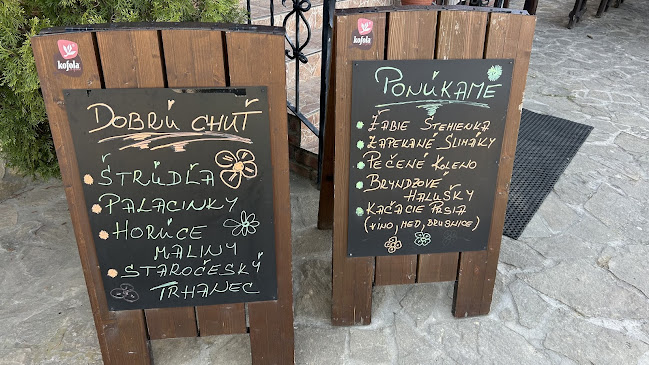 kofola
DOBRÚ CHUŤ
ŠTRÚDĽA
PALACINKY
HORÚCE
MALINY
STAROČESKÝ
TRHANEC
kofola
PONÚKAME
ŽABIE STEHIENKA
ZAPEKANÉ SLIMÁKY
PEČENÉ KOLENO
BRYNDZOVÉ
HALUŠKY
KAČACIE PRSIA
(VÍNO, MED, BRUSNICE)